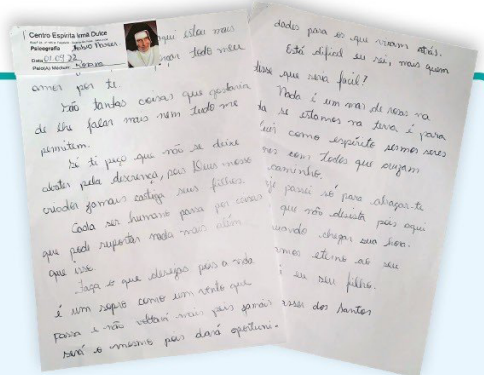 Centro Espírita Irmã Dulce
Psicografia
Data: 01.09.22
qui estou mais
todo meu
amor por te.
São tantas coisas que gostaria
de lhe falar mais nem tudo me
permitem.
Só ti peço que não se deixe
abater pela descrença, pois Deus nosso
criador jamais castiga seus filhos
Cada ser humano passa por coisas
que pode suportar nada mais além
que isso.
Faça o que desejas pois a vida
é um sopro como um vento que
passa e não voltará mais, pois jamais
será o mesmo pois dará oportuni-
dades para os que viram atrás.
Está difícil eu sei, mais quem
disse que seria fácil?
Nada é um mar de rosas na
se estamos na terra é para
como espírito sermos seres
com todos que cruzam
caminho.
passei só para abraçar-te
que não desista pois aqui
quando chegar sua hora.
eterno ao seu
eu seu filho.
dos Santos